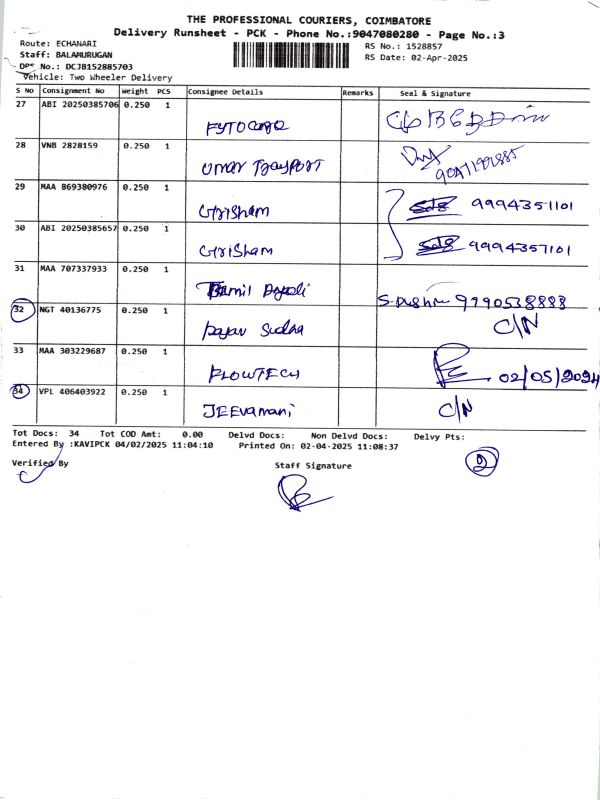 THE PROFESSIONAL COURIERS, COIMBATORE
Delivery Runsheet - PCK - Phone No.:9047080280 - Page No.:3
Route: ECHANARI
RS No.: 1528857
Staff: BALAMURUGAN
RS Date: 02-Apr-2025
DPS No.: DCJB152885703
Vehicle: Two Wheeler Delivery
S No Consignment No Weight PCS Consignee Details Remarks Seal & Signature
27 ABI 20250385706 0.250 1
28 VNB 2828159 0.250 1
29 MAA 869380976 0.250 1 Grisham 9994351101
30 ABI 20250385657 0.250 1 Grisham 9994357101
31 MAA 707337933 0.250 1 9990538888
32 NGT 40136775 0.250 1 C/N
33 MAA 303229687 0.250 1 FLOWTECH 02/05/2024
34 VPL 406403922 0.250 1 JEEvamani C/N
Tot Docs: 34 Tot COD Amt: 0.00 Delvd Docs: Non Delvd Docs: Delvy Pts:
Entered By :KAVIPCK 04/02/2025 11:04:10 Printed On: 02-04-2025 11:08:37
Verified By
Staff Signature
2